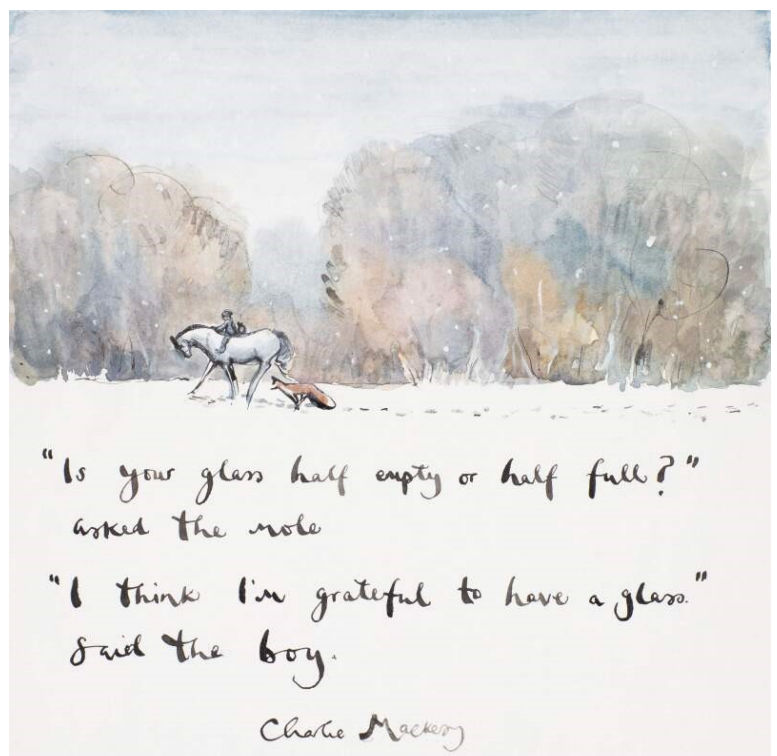 "Is your glass half empty or half full?"
asked the mole
"I think I'm grateful to have a glass."
said the boy.
Charlie Mackesy